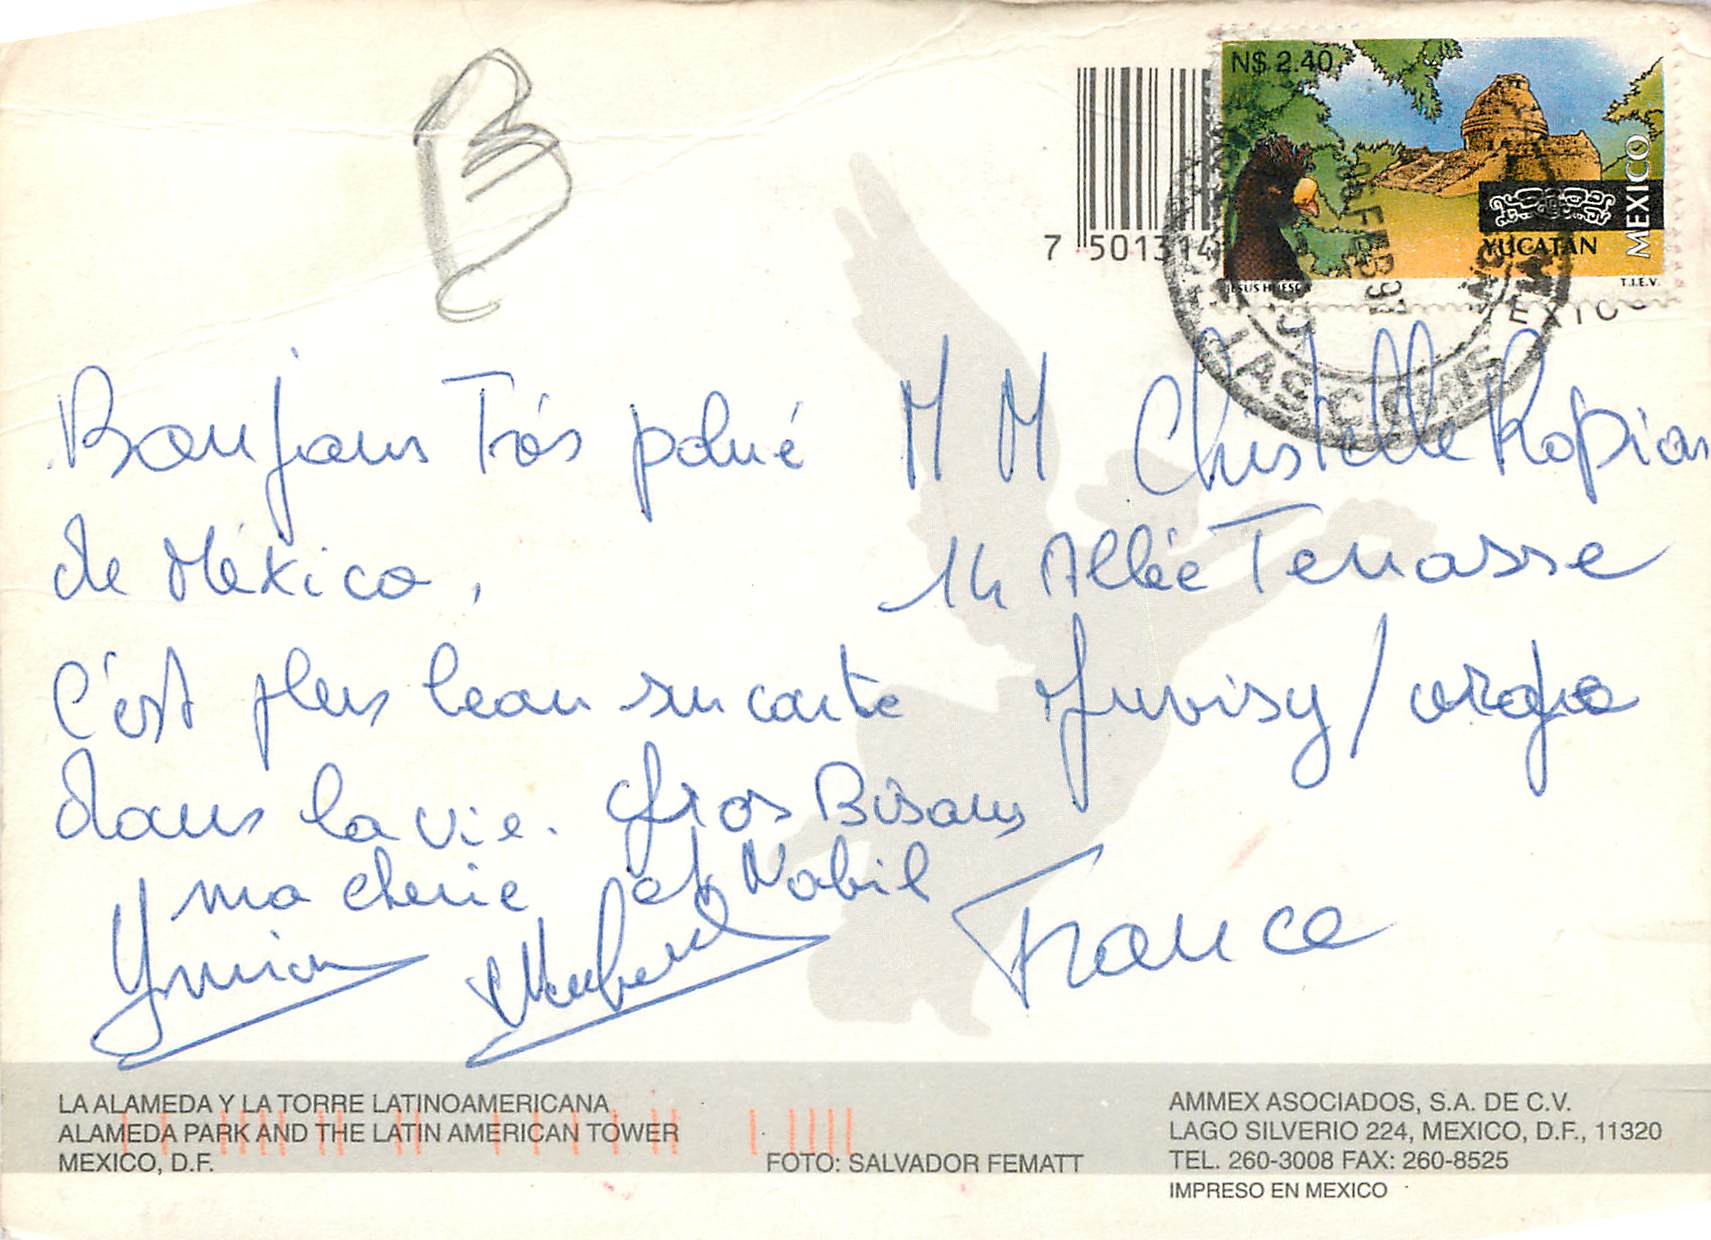 B
N$ 2.40
MEXICO
YUCATÁN
T.I.E.V.
7 501314
FEB
LAS
MEXICO
Bonjour Très polué
de México,
C'est plus beau sur carte
dans la vie. Gros Bisous
ma cherie et Nabil
M M Christelle
14 Allée Terrasse
Juvisy / orge
France
LA ALAMEDA Y LA TORRE LATINOAMERICANA
ALAMEDA PARK AND THE LATIN AMERICAN TOWER
MEXICO, D.F.
FOTO: SALVADOR FEMATT
AMMEX ASOCIADOS, S.A. DE C.V.
LAGO SILVERIO 224, MEXICO, D.F., 11320
TEL. 260-3008 FAX: 260-8525
IMPRESO EN MEXICO